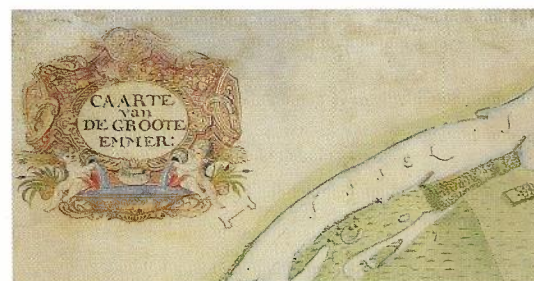 CAARTE
van
DE GROOTE
EMMER: